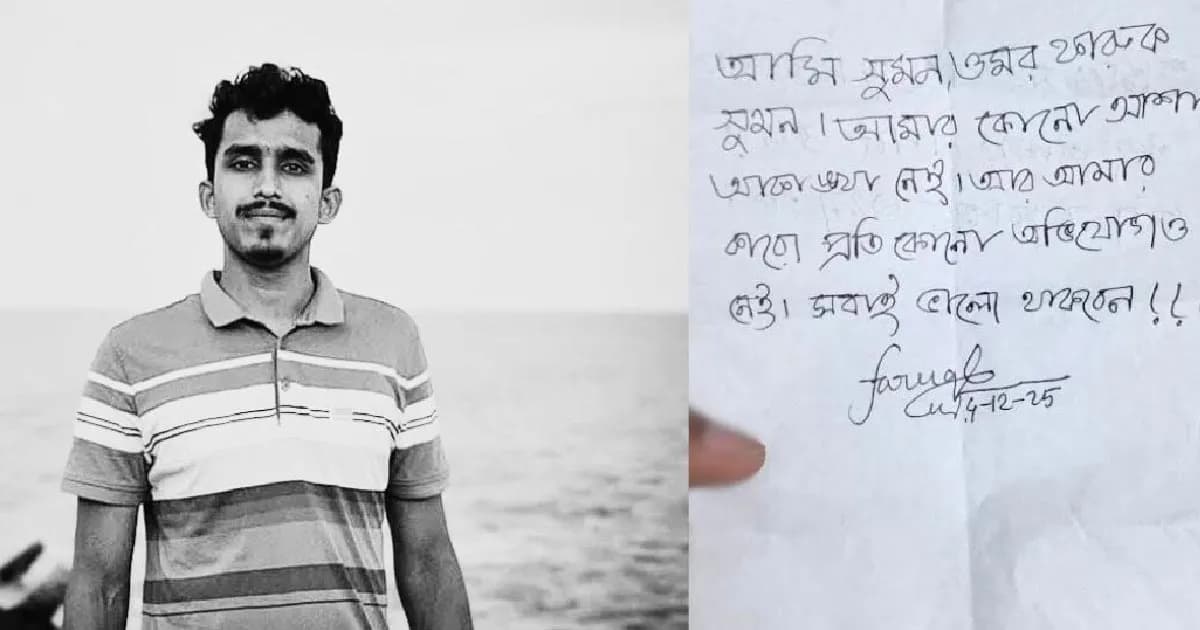 আমি সুমন, ওমর ফারুক
সুমন। আমার কোনো আশা
আকাঙ্খা নেই। আর আমার
কারো প্রতি কোনো অভিযোগও
নেই। সবাই ভালো থাকবেন!!
faruq
14-12-25